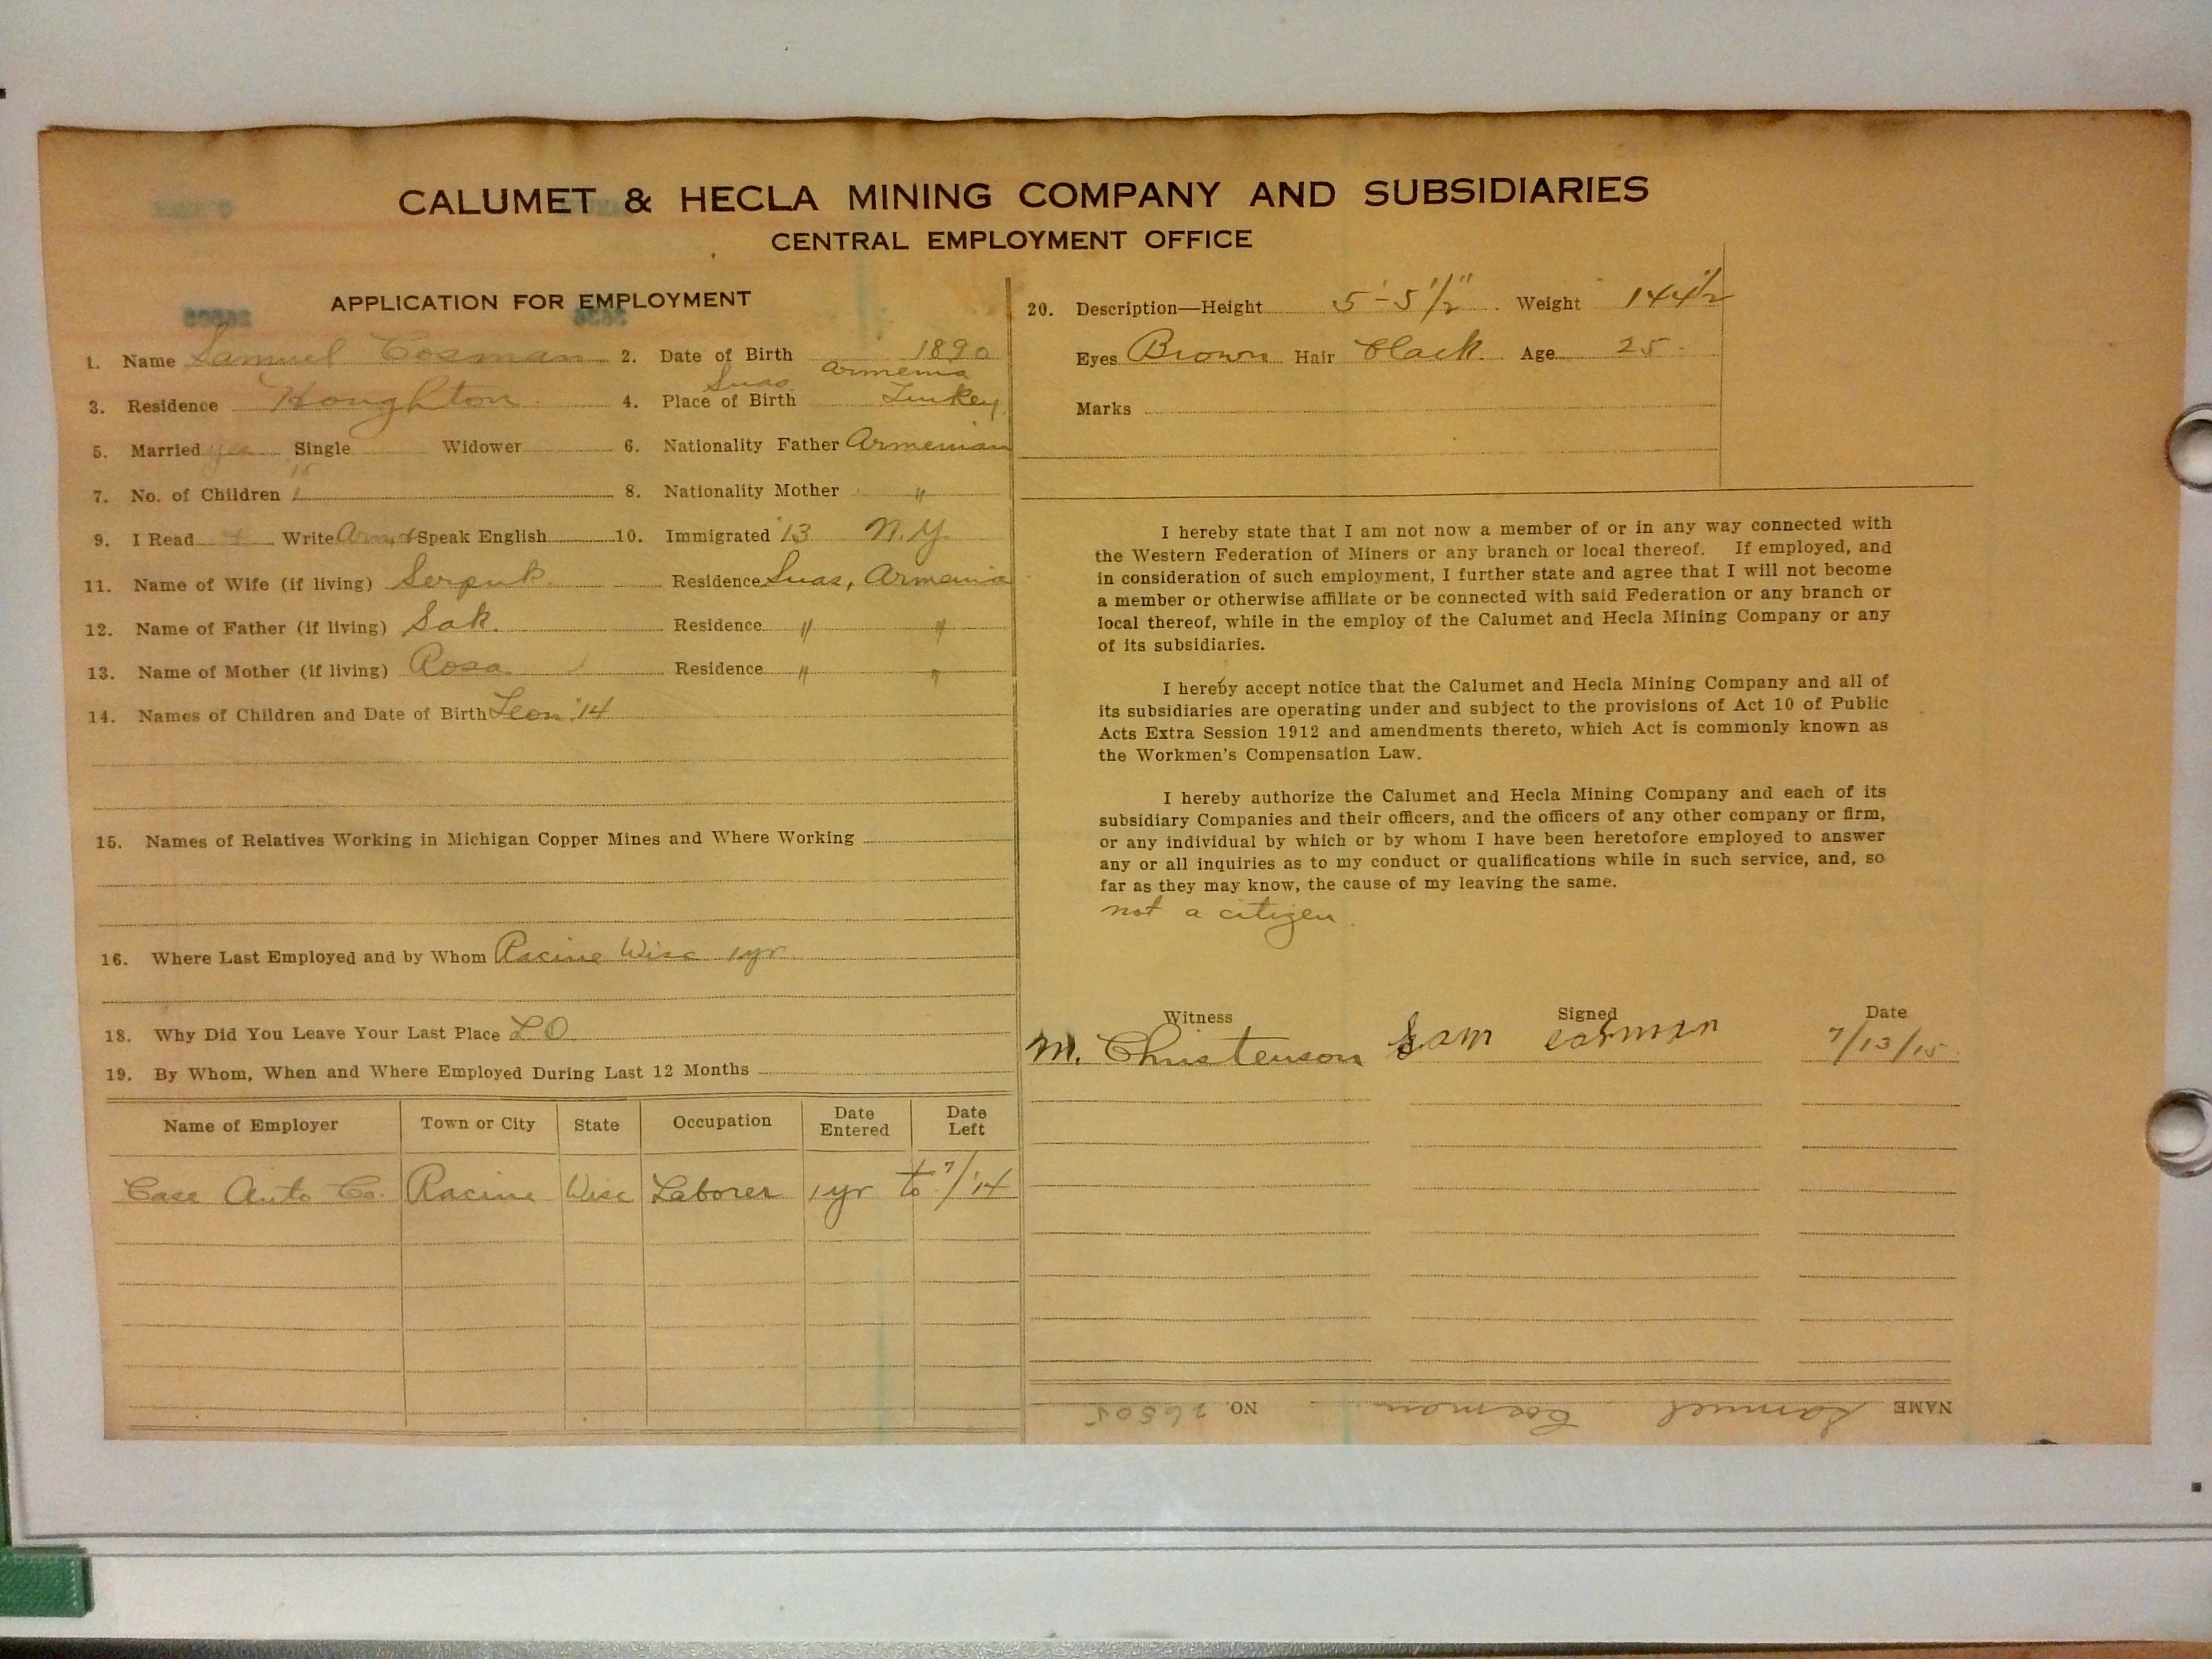 CALUMET & HECLA MINING COMPANY AND SUBSIDIARIES
CENTRAL EMPLOYMENT OFFICE
APPLICATION FOR EMPLOYMENT
1. Name Samuel Cosman 2. Date of Birth 1890
Armenia
3. Residence Houghton 4. Place of Birth Turkey
5. Married yes Single Widower 6. Nationality Father Armenian
7. No. of Children 1 8. Nationality Mother "
9. I Read Write Arm. Speak English 10. Immigrated '13 N.Y.
11. Name of Wife (if living) Serpuk Residence Suas, Armenia
12. Name of Father (if living) Sak. Residence " "
13. Name of Mother (if living) Rosa Residence " "
14. Names of Children and Date of Birth Leon '14
15. Names of Relatives Working in Michigan Copper Mines and Where Working
16. Where Last Employed and by Whom Racine Wisc 1yr.
18. Why Did You Leave Your Last Place L O
19. By Whom, When and Where Employed During Last 12 Months
Name of Employer Town or City State Occupation Date Entered Date Left
Case Auto Co. Racine Wisc Laborer 1yr to 7/'14
20. Description—Height 5'-5 1/2" Weight 144 1/2
Eyes Brown Hair Black Age 25
Marks
I hereby state that I am not now a member of or in any way connected with
the Western Federation of Miners or any branch or local thereof. If employed, and
in consideration of such employment, I further state and agree that I will not become
a member or otherwise affiliate or be connected with said Federation or any branch or
local thereof, while in the employ of the Calumet and Hecla Mining Company or any
of its subsidiaries.
I hereby accept notice that the Calumet and Hecla Mining Company and all of
its subsidiaries are operating under and subject to the provisions of Act 10 of Public
Acts Extra Session 1912 and amendments thereto, which Act is commonly known as
the Workmen's Compensation Law.
I hereby authorize the Calumet and Hecla Mining Company and each of its
subsidiary Companies and their officers, and the officers of any other company or firm,
or any individual by which or by whom I have been heretofore employed to answer
any or all inquiries as to my conduct or qualifications while in such service, and, so
far as they may know, the cause of my leaving the same.
not a citizen
Witness Signed Date
M. Christenson Sam cosman 7/13/15
NAME Samuel Cosman NO. 26505